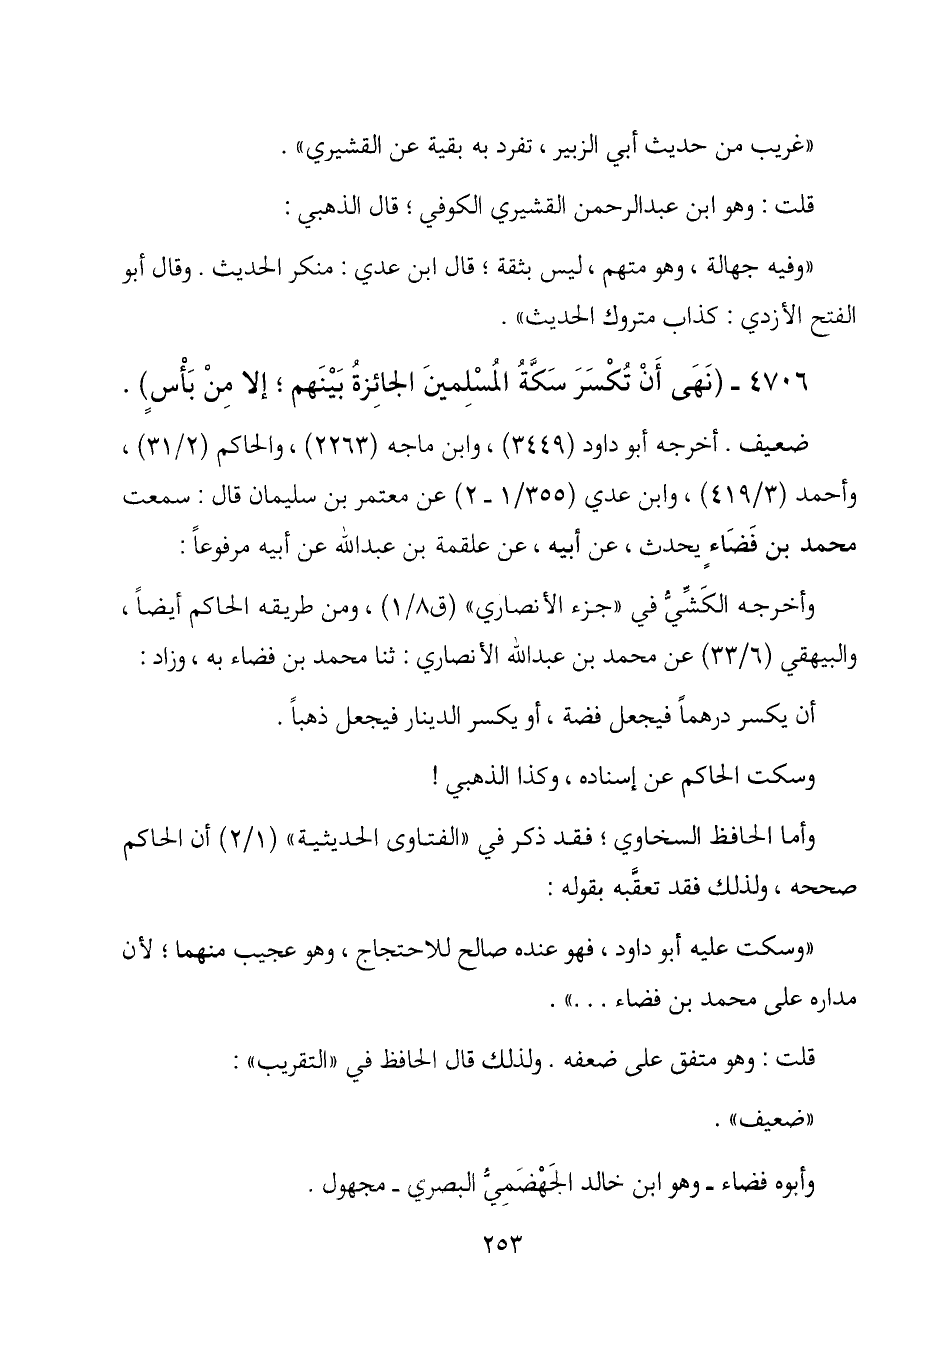 «غريب من حديث أبي الزبير ، تفرد به بقية عن القشيري» .
قلت : وهو ابن عبدالرحمن القشيري الكوفي ؛ قال الذهبي :
«وفيه جهالة ، وهو متهم ، ليس بثقة ؛ قال ابن عدي : منكر الحديث . وقال أبو
الفتح الأزدي : كذاب متروك الحديث» .
٤٧٠٦ ـ (نَهَى أَنْ تُكْسَرَ سَكَّةُ المُسْلِمينَ الجائِزةُ بَيْنَهم ؛ إلا مِنْ بَأْسٍ) .
ضعيف . أخرجه أبو داود (٣٤٤٩) ، وابن ماجه (٢٢٦٣) ، والحاكم (٣١/٢) ،
وأحمد (٤١٩/٣) ، وابن عدي (١/٣٥٥ ـ ٢) عن معتمر بن سليمان قال : سمعت
محمد بن فَضَاءٍ يحدث ، عن أبيه ، عن علقمة بن عبدالله عن أبيه مرفوعاً :
وأخرجه الكَشِّيُّ في «جزء الأنصاري» (ق١/٨) ، ومن طريقه الحاكم أيضاً ،
والبيهقي (٣٣/٦) عن محمد بن عبدالله الأنصاري : ثنا محمد بن فضاء به ، وزاد :
أن يكسر درهماً فيجعل فضة ، أو يكسر الدينار فيجعل ذهباً .
وسكت الحاكم عن إسناده ، وكذا الذهبي !
وأما الحافظ السخاوي ؛ فقد ذكر في «الفتاوى الحديثية» (٢/١) أن الحاكم
صححه ، ولذلك فقد تعقَّبه بقوله :
«وسكت عليه أبو داود ، فهو عنده صالح للاحتجاج ، وهو عجيب منهما ؛ لأن
مداره على محمد بن فضاء . . .» .
قلت : وهو متفق على ضعفه . ولذلك قال الحافظ في «التقريب» :
«ضعيف» .
وأبوه فضاء ـ وهو ابن خالد الجَهْضَمِيُّ البصري ـ مجهول .
٢٥٣